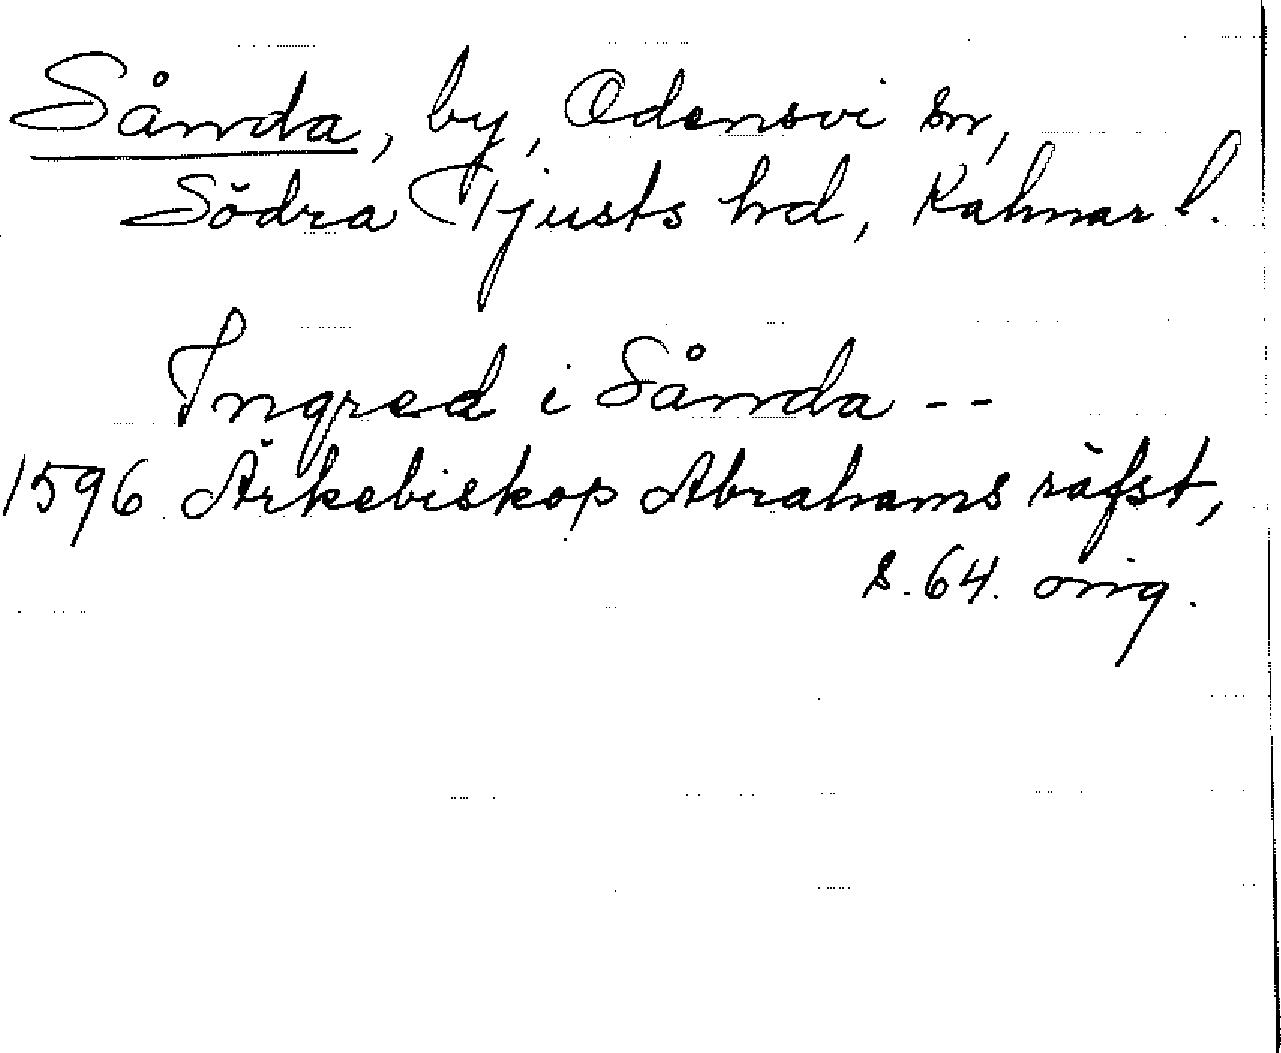 Sånda, by, Odensvi sn,
Södra Tjusts hd, Kalmar l.
Ingred i Sånda --
1596 Ärkebiskop Abrahams räfst,
s. 64. orig.